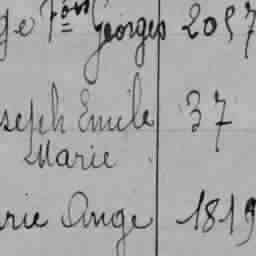 ge Fçois Georges 2057
seph Emile 37
Marie
rie Ange 1819